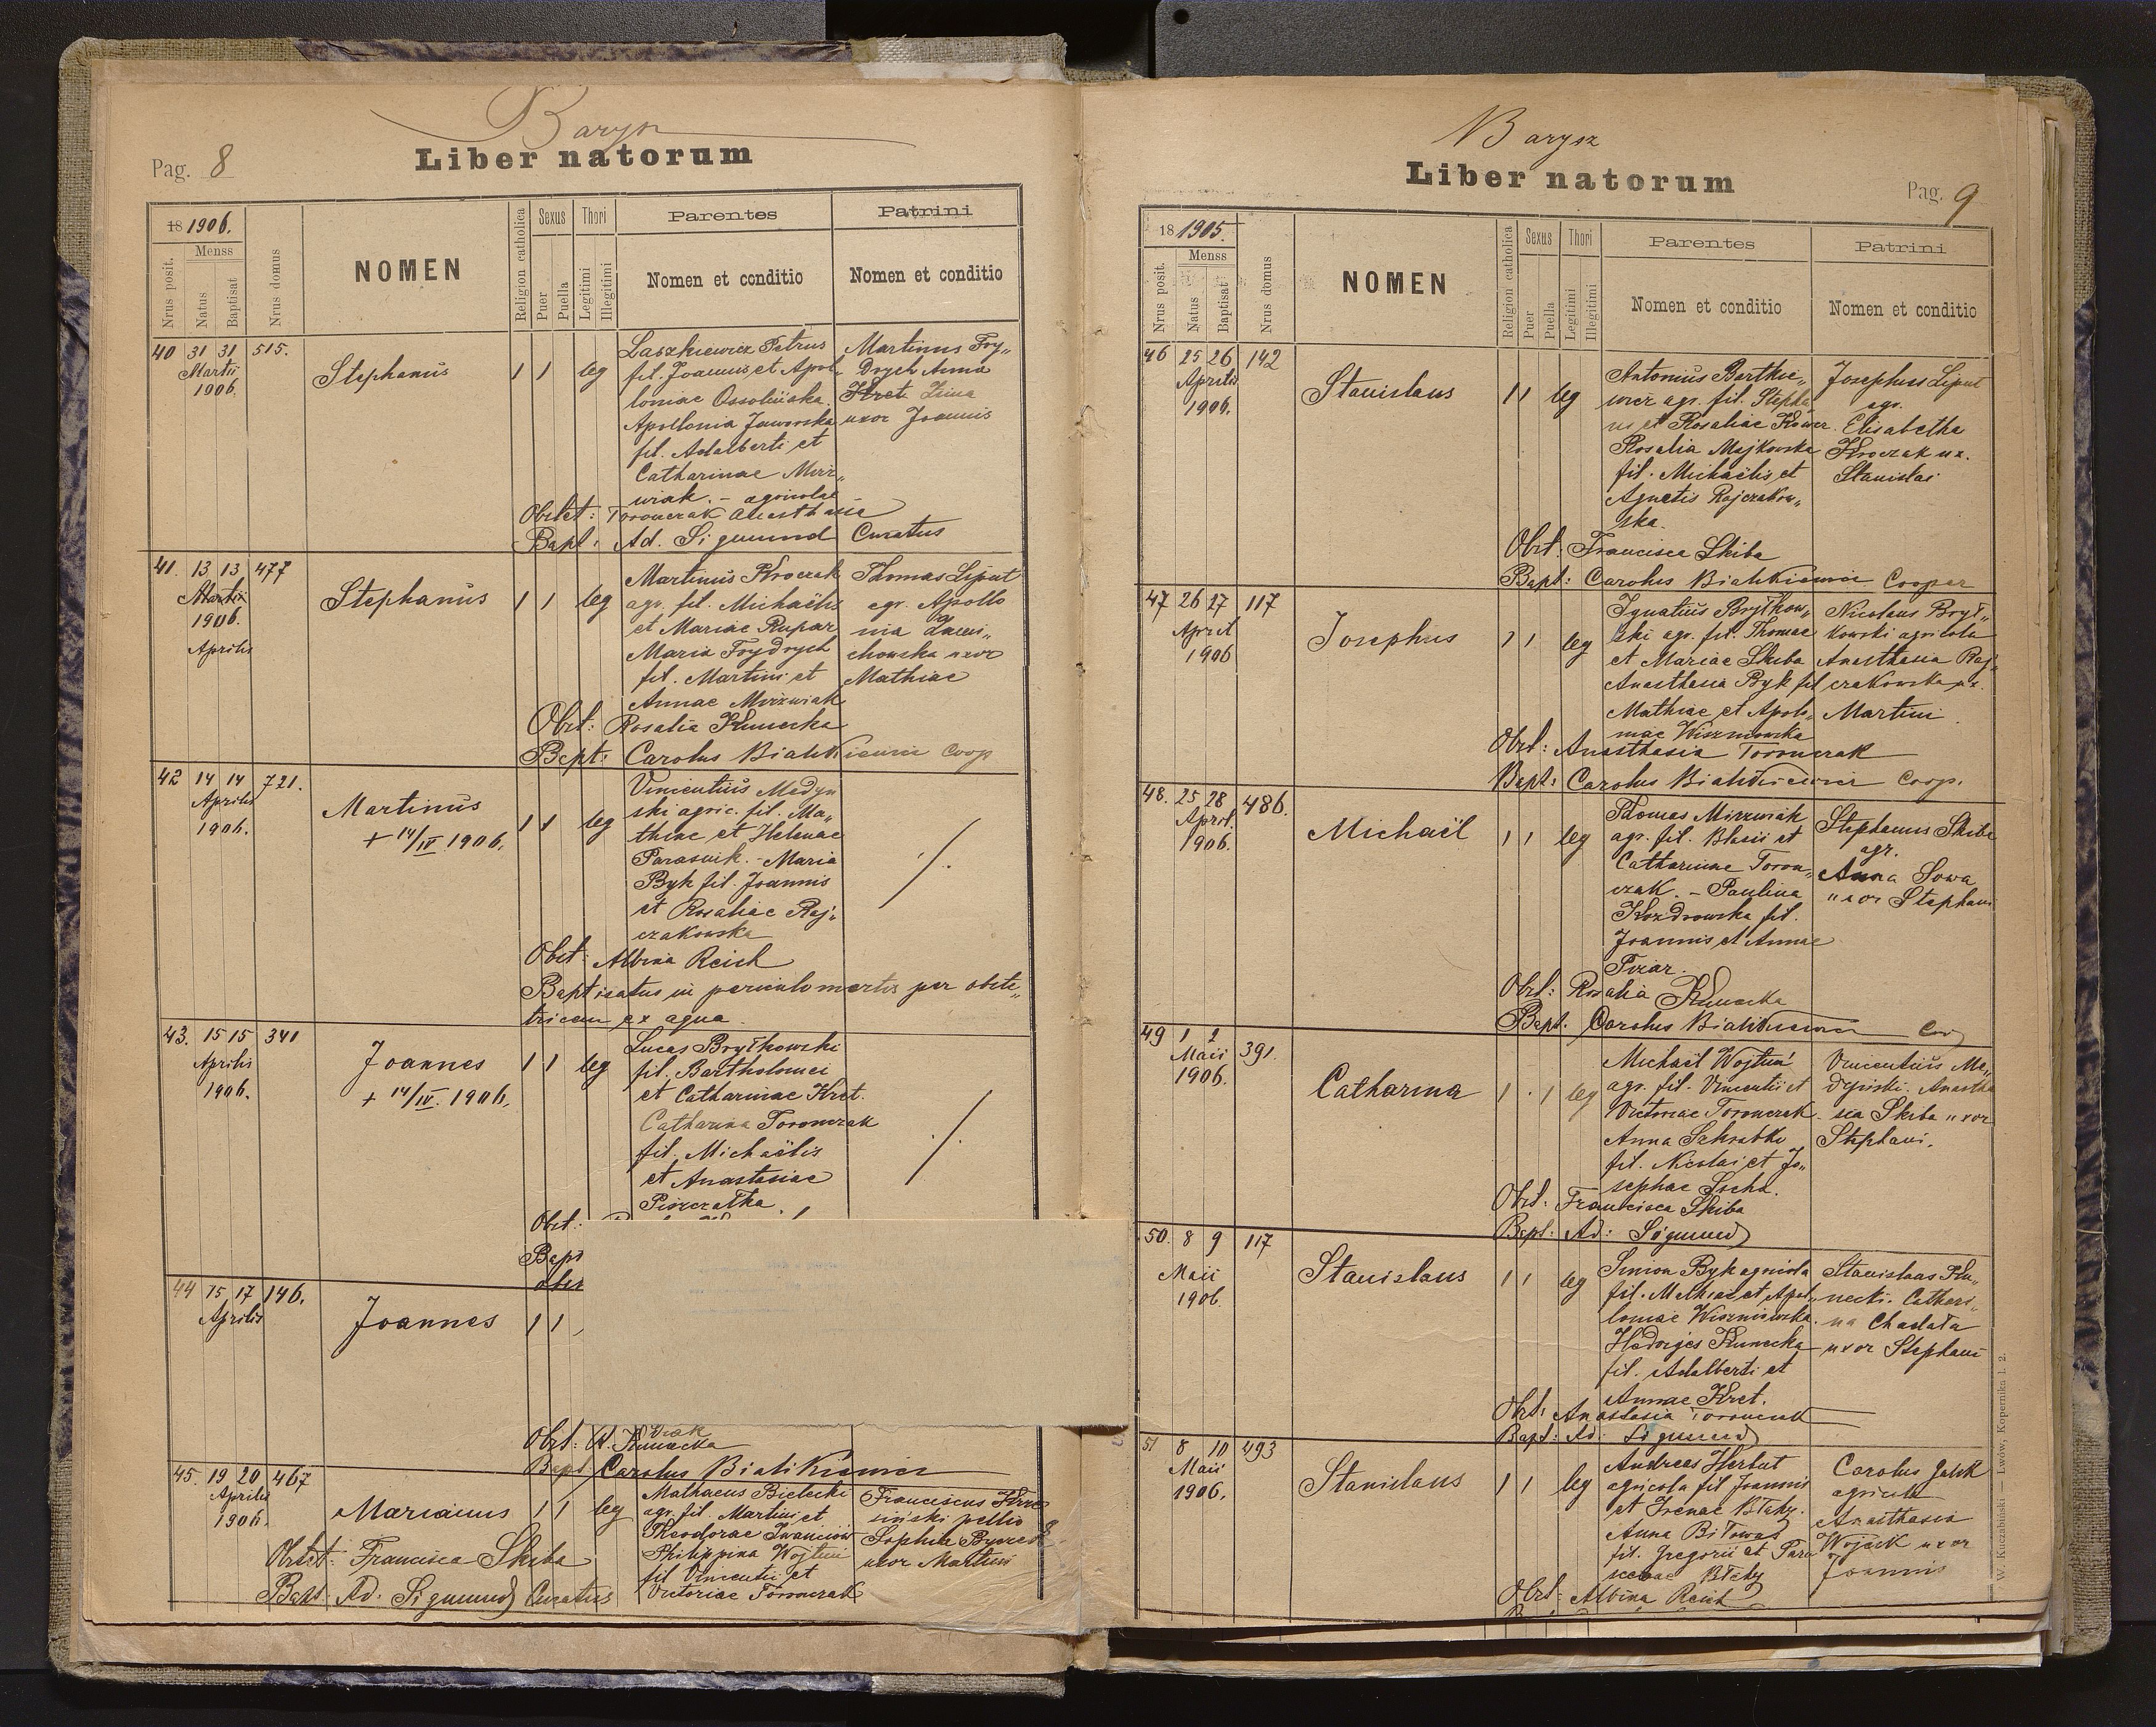 Barysz
Pag. 8
Liber natorum
18 1906.
Menss
Nrus posit.
Natus
Baptisat
Nrus domus
NOMEN
Religion catholica
Sexus
Puer
Puella
Thori
Legitimi
Illegitimi
Parentes
Nomen et conditio
Patrini
Nomen et conditio
40 31 31 515.
Martii
1906.
Stephanus
1 1 leg
Laszkiewicz Petrus
fil. Joannis et Apol„
loniae Ossolińska.
Apollonia Jaworska
fil. Adalberti et
Catharinae Mierz„
wiak. - agricolae
Martinus Fry„
drych Anna
Kret Zima
uxor Joannis
Obstet: Toronczak Anasthasia
Bapt: Ad. Sigmund Curatus
41. 13 13 477
Martii
1906.
Aprilis
Stephanus
1 1 leg
Martinus Kroczak
agr. fil. Michaëlis
et Mariae Rupar
Maria Frydrych
fil. Martini et
Annae Mierzwiak
Thomas Liput
agr. Apollo
nia
chowska uxor
Mathiae
Obst: Rosalia Kunecka
Bapt: Carolus Bialikiewicz Coop
42 14 14 721.
Aprilis
1906.
Martinus
+ 14/IV 1906.
1 1 leg
Vincentius Medyń
ski agric. fil. Ma„
thiae et Helenae
Parasuik. - Maria
Byk fil. Joannis
et Rosaliae Raj„
czakowska
./.
Obst: Albina Reich
Baptisatus in periculo mortis per obste„
tricem ex aqua
43. 15 15 341
Aprilis
1906.
Joannes
+ 14/IV. 1906.
1 1 leg
Lucas Bryłkowski
fil. Bartholomei
et Catharinae Kret.
Catharina Toronczak
fil. Michaëlis
et Anastasiae
Piszczatka.
./.
Obst:
Bapt
obst
44 15 17 146.
Aprilis
Joannes
1 1
wiak
Obst: A. Kunecka
Bapt Carolus Bialikiewicz
45. 19 20 467
Aprilis
1906.
Marianus
1 1 leg
Mathaeus Bielecki
agr. fil. Martini et
Theodorae Iwanciów
Philippina Wojtuń
fil Vincentii et
Victoriae Toronczak
Franciscus
siński pellio
Sophia
uxor Martini
Obstet: Francisca Skiba
Bapt. Ad: Sigmund Curatus
Barysz
Liber natorum
Pag. 9
18 1905.
Menss
Nrus posit.
Natus
Baptisat
Nrus domus
NOMEN
Religion catholica
Sexus
Puer
Puella
Thori
Legitimi
Illegitimi
Parentes
Nomen et conditio
Patrini
Nomen et conditio
46 25 26 142
Aprilis
1906.
Stanislaus
1 1 leg
Antonius Bartkie„
wicz agr. fil. Stepha„
ni et Rosaliae Kower.
Rosalia Majkowska
fil. Michaëlis et
Agnetis Rajczakow„
ska.
Josephus Liput
agr.
Elisabetha
Kroczak ux.
Stanislai
Obst: Francisca Skiba
Bapt: Carolus Bialikiewicz Cooper
47 26 27 117
April
1906
Josephus
1 1 leg
Ignatius Bryłkow„
ski agr. fil. Thomae
et Mariae Skiba
Anasthasia Byk fil
Mathiae et Apolo„
niae Wiszniowska
Nicolaus Brył„
kowski agricola
Anasthasia Raj„
czakowska ux.
Martini
Obst: Anasthasia Toronczak
Bapt: Carolus Bialikiewicz Coop.
48. 25 28 486.
April.
1906.
Michaël
1 1 leg
Thomas Mierzwiak
agr. fil. Blasii et
Catharinae Toron„
czak. - Paulina
Kozdrowska fil.
Joannis et Annae
Pisiar.
Stephanus Skiba
agr.
Anna Sowa
uxor Stephani
Obst: Rosalia Kunecka
Bapt. Carolus Bialikiewicz Coop
49 1 2 391.
Maii
1906.
Catharina
1 . 1 leg
Michaël Wojtuń
agr. fil. Vincentii et
Victoriae Toronczak
Anna Szkrabko
fil. Nicolai et Jo„
sephae Socha.
Vincentius Me„
dyński. Anastha
sia Skiba uxor
Stephani.
Obst. Francisca Skiba
Bapt: Ad: Sigmund
50. 8 9 117
Maii
1906.
Stanislaus
1 1 leg
Simion Byk agricola
fil. Mathiae et Apol„
loniae Wiszniewska.
Hedviges Kunecka
fil. Adalberti et
Annae Kret.
Stanislaus Ku„
necki. Cathari„
na Chadała
uxor Stephani
Obst: Anastasia Toronczak
Bapt: Ad: Sigmund
51 8 10 493
Maii
1906.
Stanislaus
1 1 leg
Andreas Herbut
agricola fil Joannis
et Irenae Błahy.
Anna Biłowas
fil. Gregorii et Para
scevae Błahy
Carolus
agricola
Anasthasia
Wojcik uxor
Joannis
Obst: Albina Reich
W. Kuczabiński — Lwów, Kopernika l. 2.